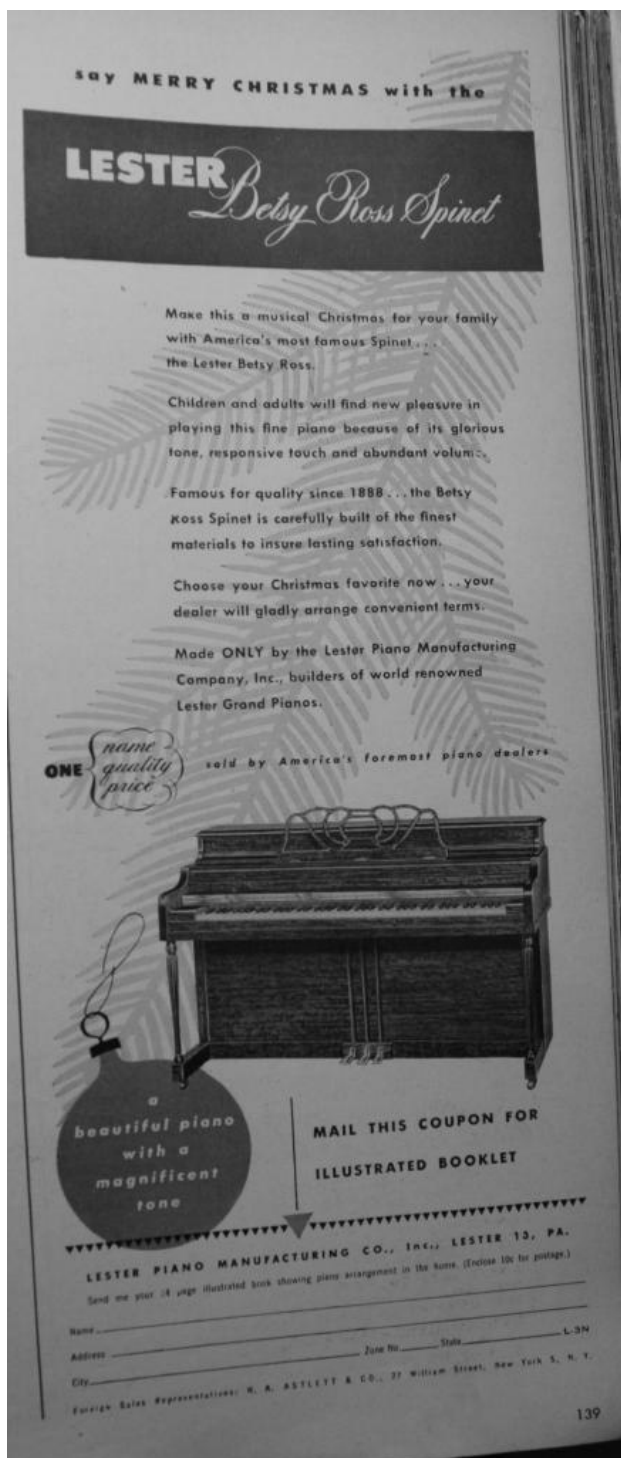 say MERRY CHRISTMAS with the
LESTER Betsy Ross Spinet
Make this a musical Christmas for your family
with America's most famous Spinet...
the Lester Betsy Ross.
Children and adults will find new pleasure in
playing this fine piano because of its glorious
tone, responsive touch and abundant volume.
Famous for quality since 1888...the Betsy
Ross Spinet is carefully built of the finest
materials to insure lasting satisfaction.
Choose your Christmas favorite now...your
dealer will gladly arrange convenient terms.
Made ONLY by the Lester Piano Manufacturing
Company, Inc., builders of world renowned
Lester Grand Pianos.
ONE
name
quality
price
sold by America's foremost piano dealers
a
beautiful piano
with a
magnificent
tone
MAIL THIS COUPON FOR
ILLUSTRATED BOOKLET
LESTER PIANO MANUFACTURING CO., Inc., LESTER 13, PA.
Send me your page illustrated book showing piano arrangement in the home. (Enclose 10c for postage.)
Name
Address
City No. State L-3N
Foreign Sales Representatives: H. A. ASTLETT & CO., 27 William Street, New York 5, N. Y.
139